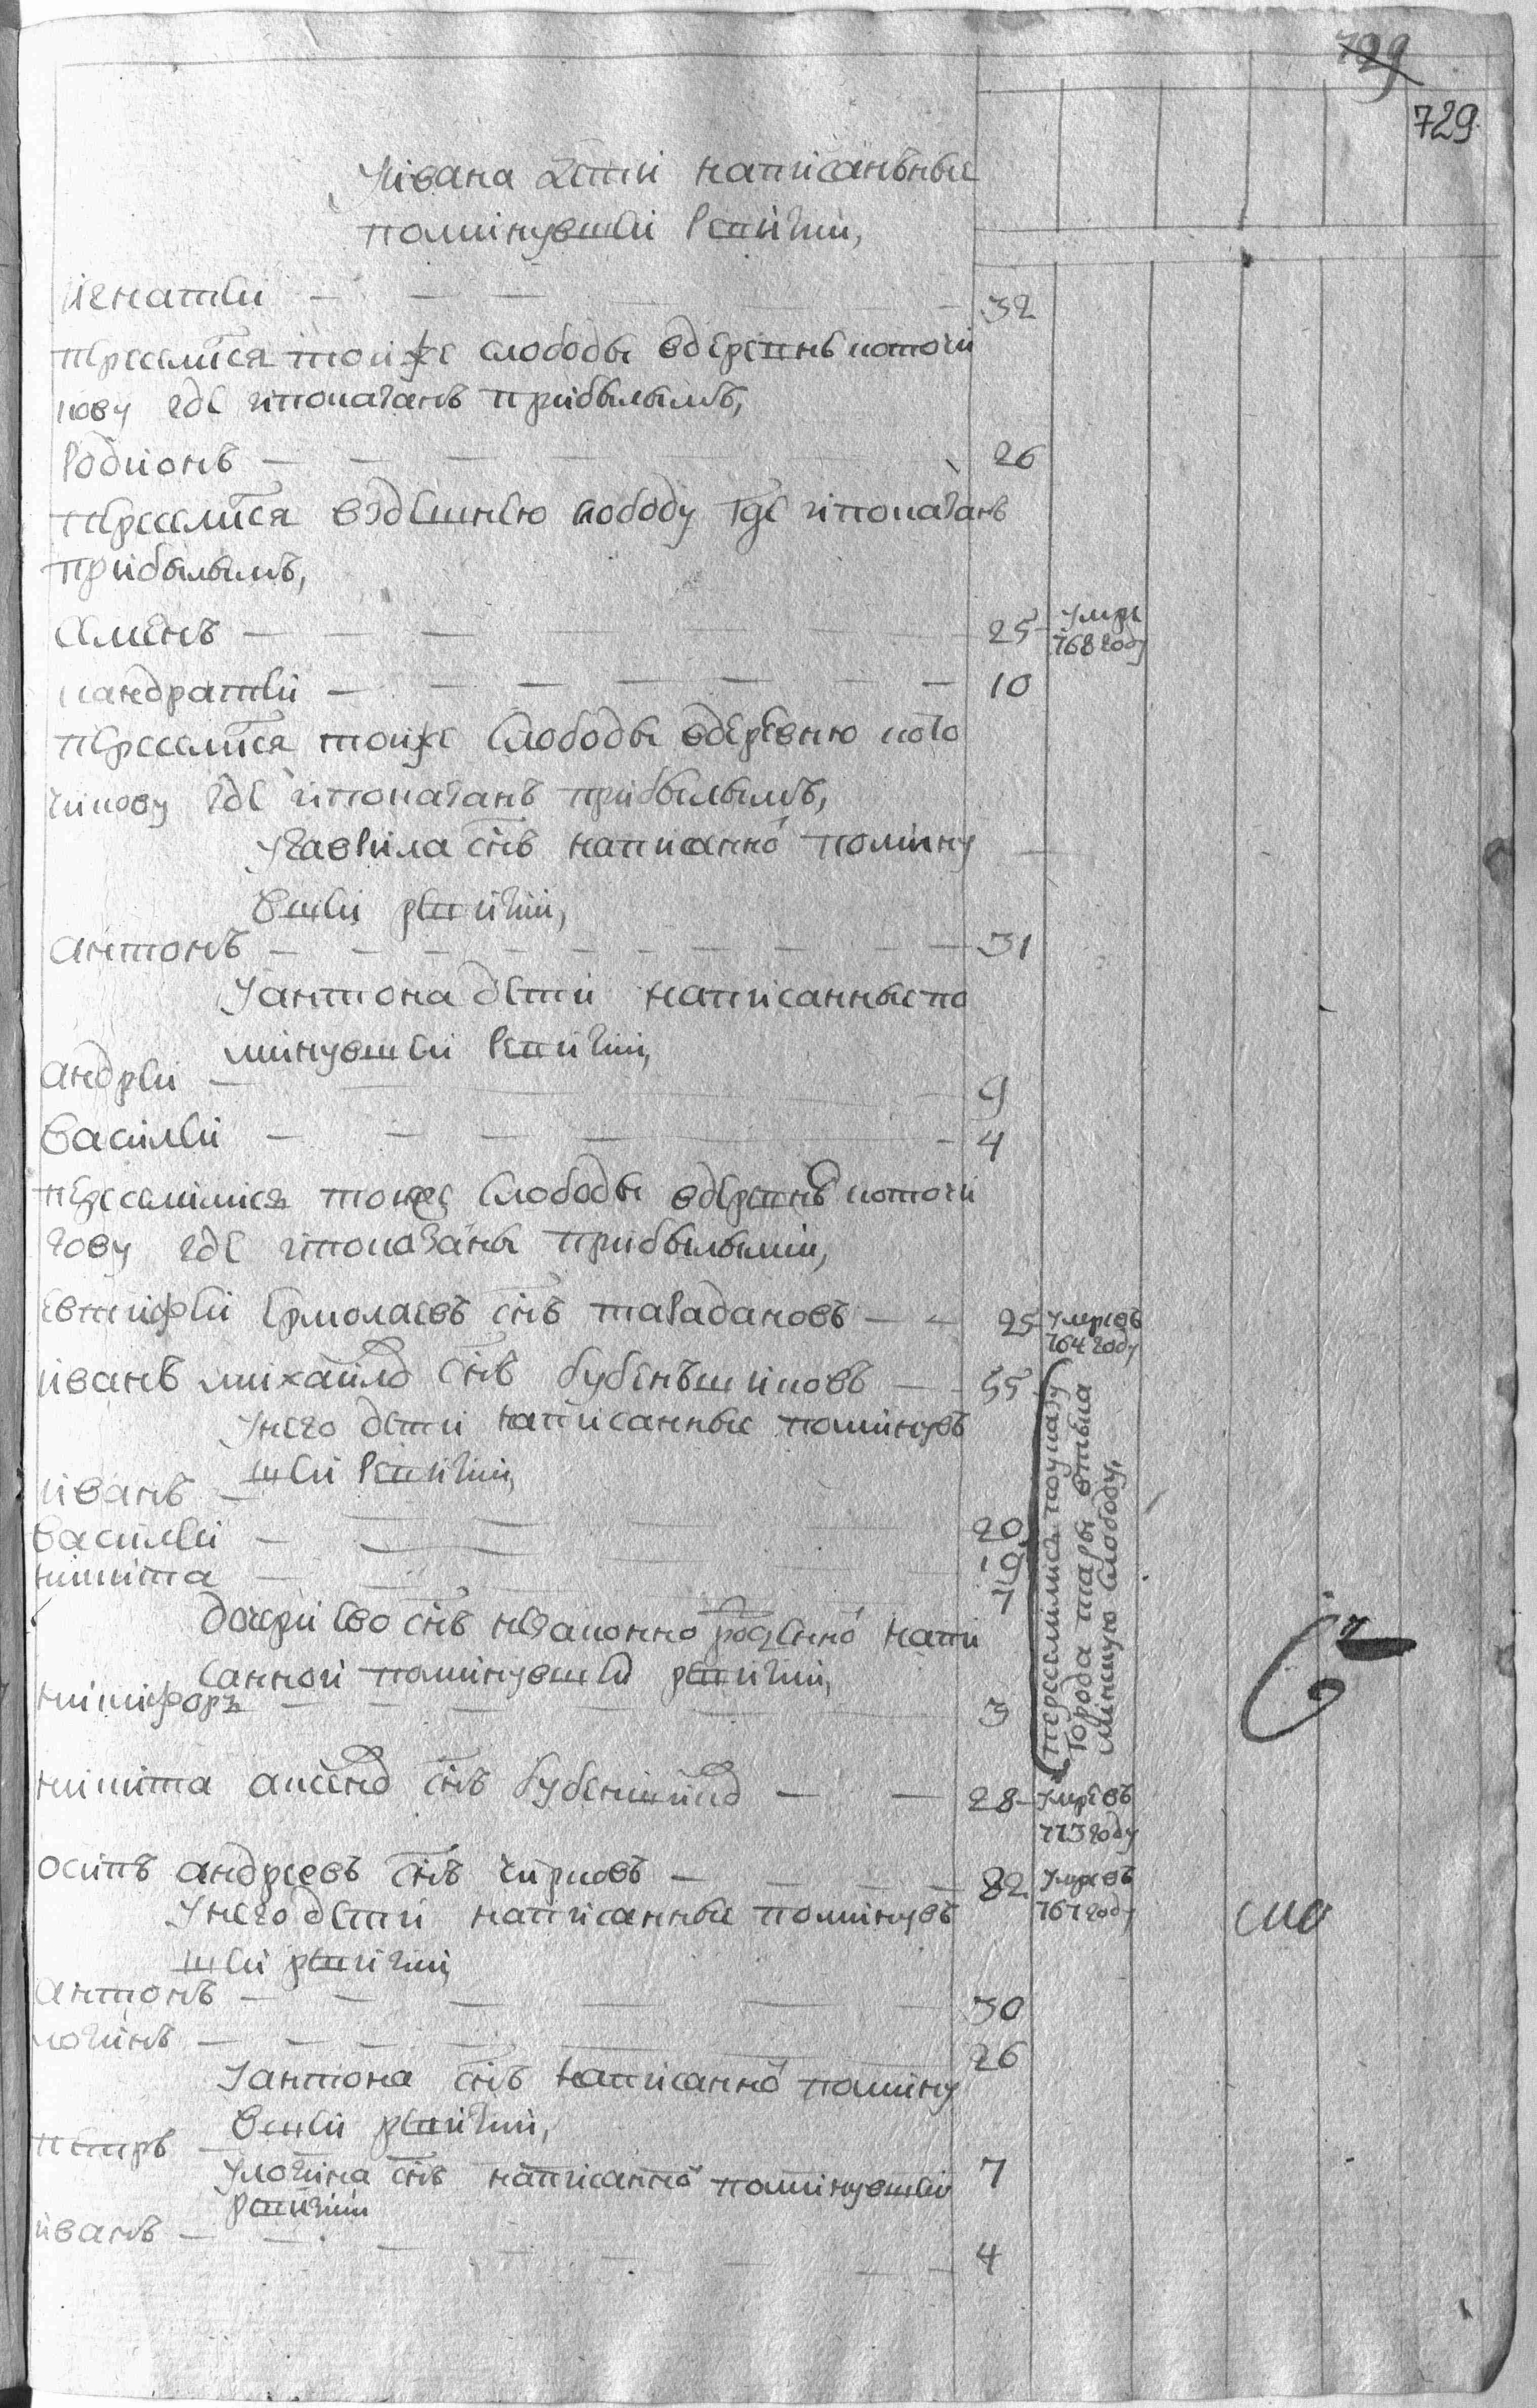 729
729
Уивана дети написанъные
поминувшеи ревизии,
игнатеи — — — 32
переселился тоиже слободы вдеревнь кокши
кову где ипоказанъ прибылымъ,
Родионъ — — — 26
переселился вздешнею слободу где ипоказанъ
прибылымъ,
семенъ — — — 25 умре
768 году
кандратеи — — — 10
переселился тоиже слободы вдеревню
кову где ипоказанъ прибылымъ,
Угаврила снъ написанно помину
вшеи ревизии,
антонъ — — — 31
Уантона дети написанные по
минувшеи ревизии,
андреи — — — 9
василеи — — — 4
переселились тоиже слободы вдеревнь
кову где ипоказаны прибылыми,
евтифеи Ермолаевъ снъ тарадановъ — — 25 умревъ
764 году
иванъ михаило снъ бубенъшиковъ — — 55
Унего дети написанные поминувъ
шеи ревизии,
иванъ — 20
василеи — 19
никита — 7
дочери ево снъ незаконно рожденно напи
санной поминувшей ревизии,
никифоръ — — 3
переселились поуказу
города тары
слободу,
никита аксено снъ бубеншико — — 28 умревъ
773 году
осипъ андреевъ снъ чирковъ — — — 82 умревъ
767 году
Унего дети написанные поминувъ
шеи ревизии,
антонъ — — — 30
логинъ — — — 26
Уантона снъ написанно помину
вшеи ревизии,
петръ — 7
Улогина снъ написанно поминувшеи
ревизии
иванъ — — — 4